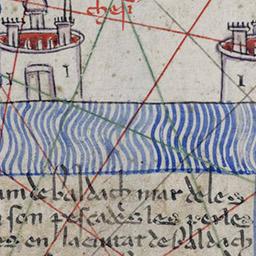 chesi
am de baldach mar de les
son pescades les perles
es en la ciutat de baldach